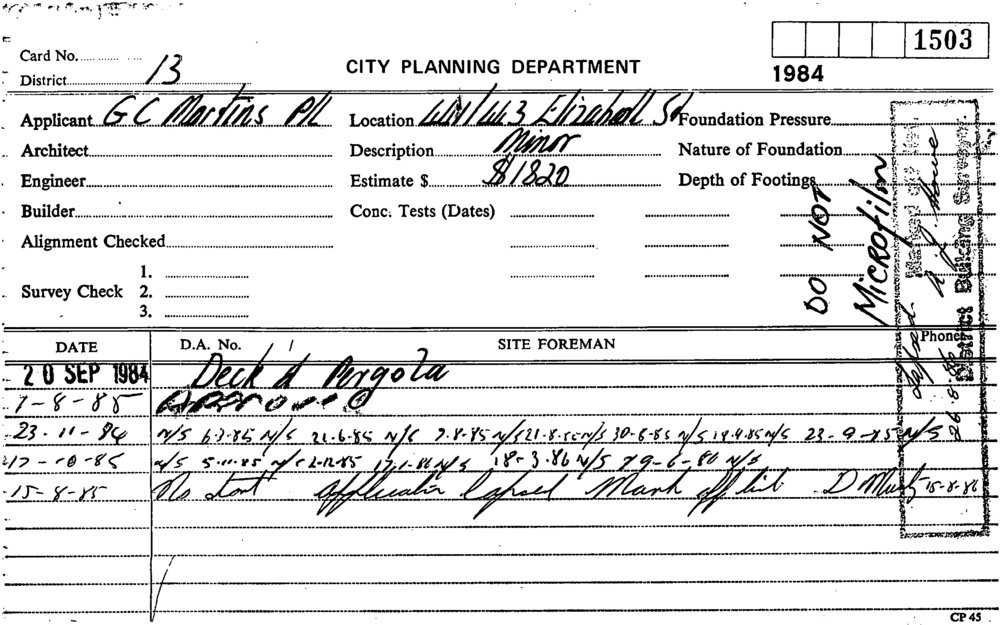 1503
Card No.
CITY PLANNING DEPARTMENT
1984
District 13
Applicant G C Martins P/L Location 441/443 Elizabeth St Foundation Pressure
Architect Description Minor Nature of Foundation
Engineer Estimate $ $1820 Depth of Footings
Builder Conc. Tests (Dates)
Alignment Checked
1.
Survey Check 2.
3.
DO NOT
MICROfilm
Lapsed
District Building Surveyor.
26-8-86
DATE D.A. No. SITE FOREMAN Phone
20 SEP 1984 Deck & Pergola
7-8-85 APPROVED
23-11-84 N/S 6-3-85 N/S 21-6-85 N/S 7-8-85 N/S 21-8-85 N/S 30-8-85 N/S 18-9-85 N/S 23-9-85 N/S
17-10-85 N/S 5-11-85 N/S 2-12-85 17-1-86 N/S 18-3-86 N/S 19-6-86 N/S
15-8-85 No start application lapsed Mark off list D 15-8-86
CP 45